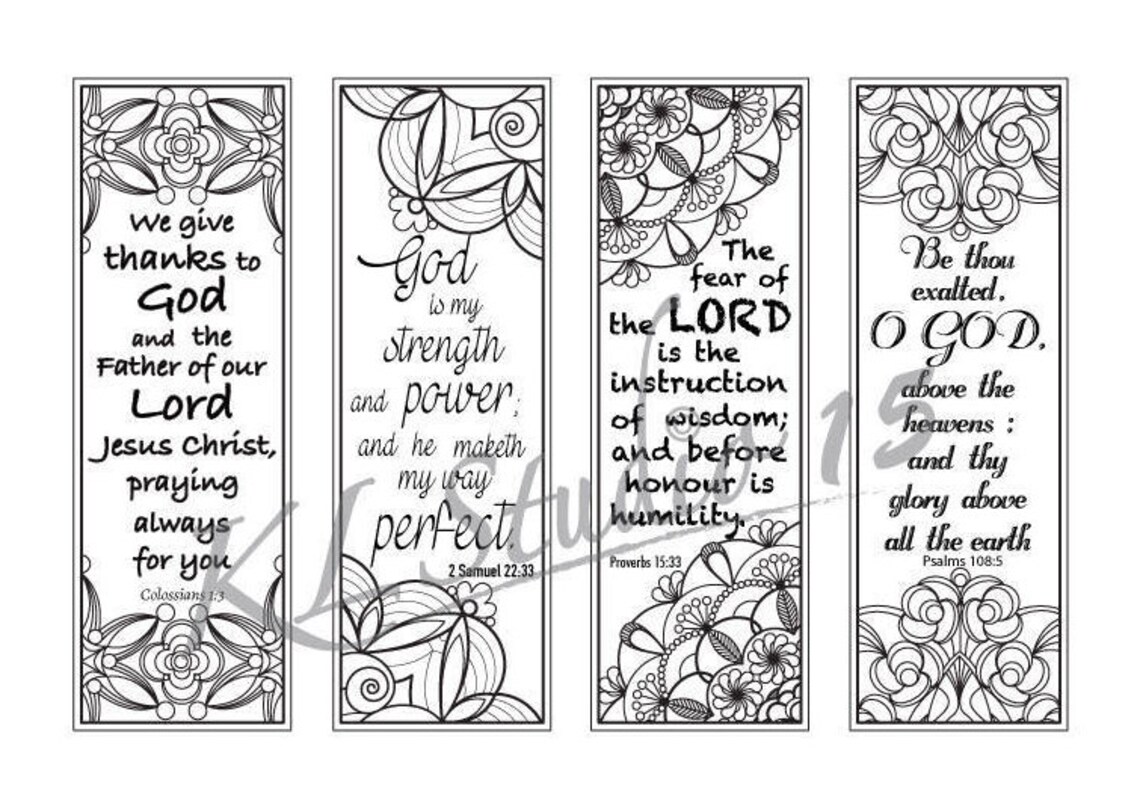 We give
thanks to
God
and the
Father of our
Lord
Jesus Christ,
praying
always
for you
Colossians 1:3
God
is my
strength
and power;
and he maketh
my way
perfect.
2 Samuel 22:33
The
fear of
the LORD
is the
instruction
of wisdom;
and before
honour is
humility.
Proverbs 15:33
Be thou
exalted,
O GOD,
above the
heavens :
and thy
glory above
all the earth
Psalms 108:5
KL Studio 15
©